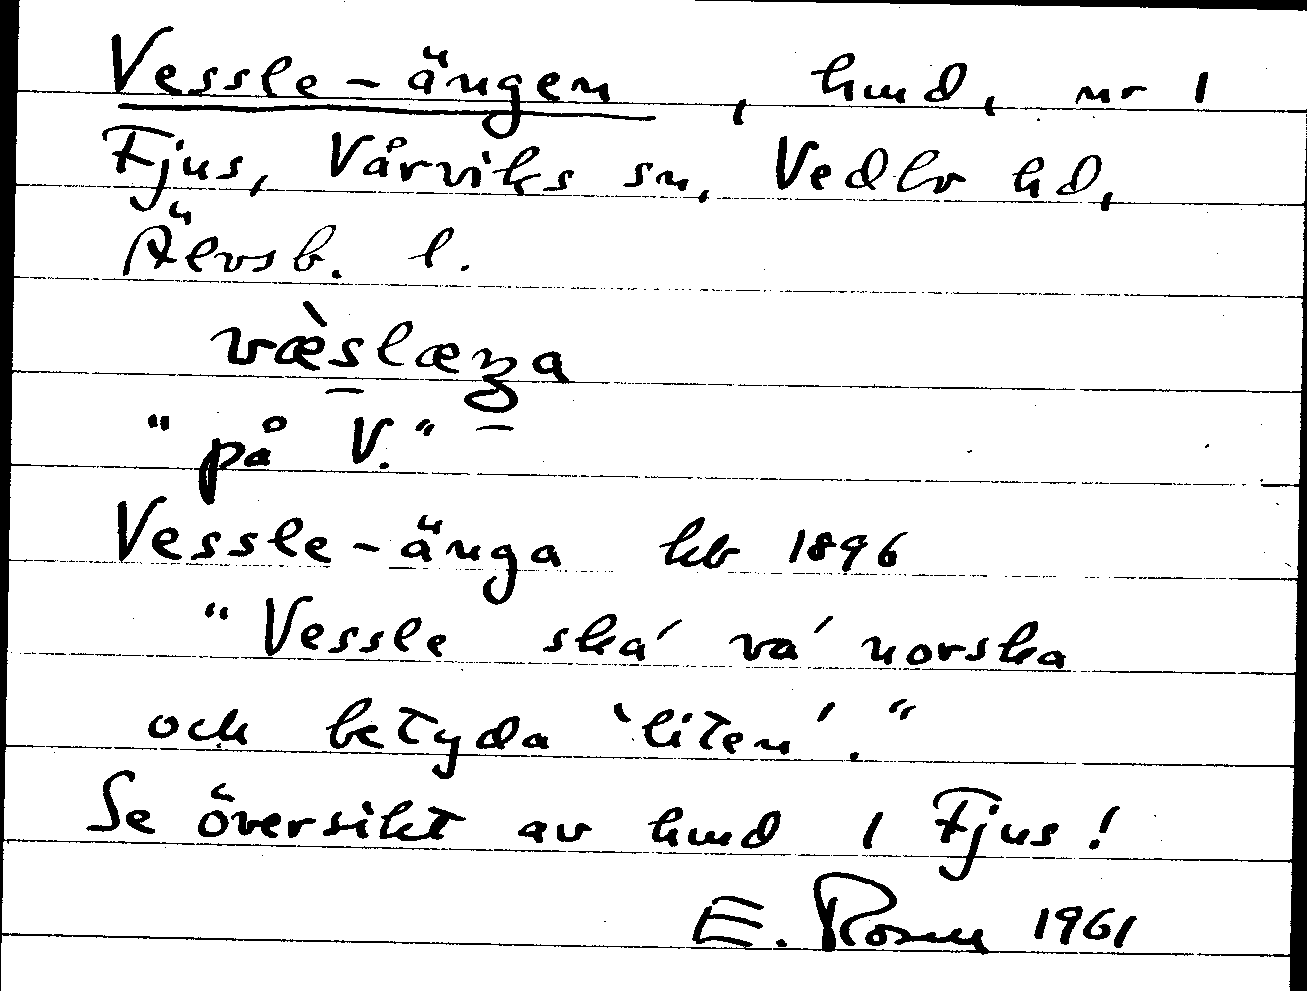 Vessle-ängen, hmd, nr 1
Fjus, Vårviks sn, Vedbo hd,
Älvsb. l.
væ̀slæŋa
"på V."
Vessle-änga kb 1896
"Vessle ska' va' norska
och betyda 'liten'."
Se översikt av hmd 1 Fjus!
E. Rosen 1961